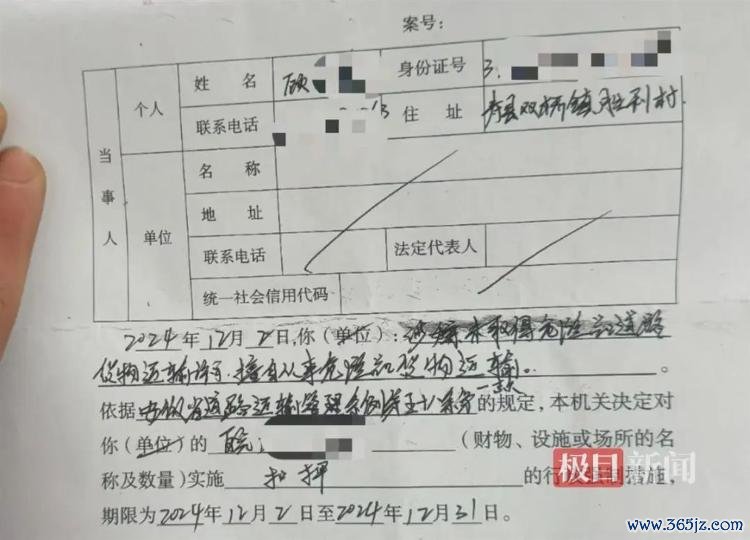 案号：
当事人 个人 姓 名 顾 身份证号 3.
联系电话 住 址 寿县双桥镇胜利村
单位 名 称
地 址
联系电话 法定代表人
统一社会信用代码
2024年12月2日,你(单位)：涉嫌未取得危险品道路
货物运输许可,擅自从事危险品货物运输。
依据安徽省道路运输管理条例第五十八条第一款的规定，本机关决定对
你(单位)的 皖 (财物、设施或场所的名
称及数量)实施 扣押 的行政强制措施，
期限为2024年12月2日至2024年12月31日。
极目新闻
www.365jz.com